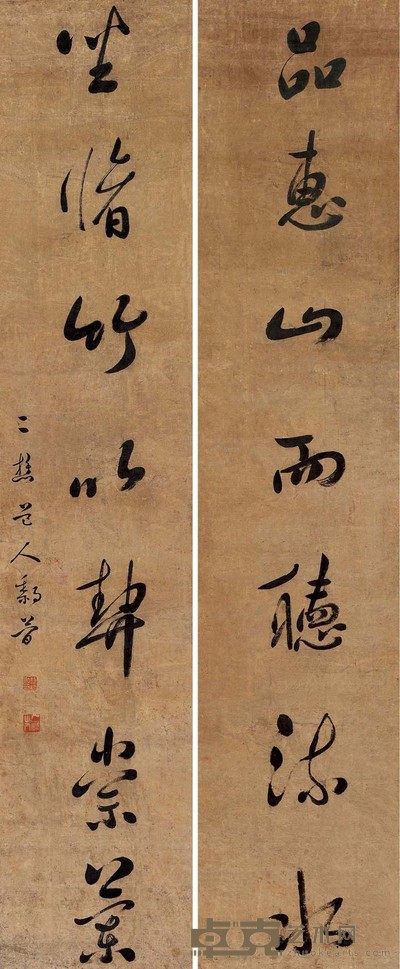 品惠山而聽流水
坐脩竹以契崇蘭
二樵道人黎簡